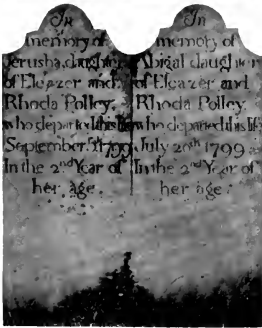 In
memory of
Jerusha, daughter
of Eleazer and
Rhoda Polley,
who departed this life
September. 1799
In the 2nd Year of
her age.
In
memory of
Abigal daughter
of Eleazer and
Rhoda Polley,
who departed this life
July 20th 1799
In the 2nd Year of
her age.